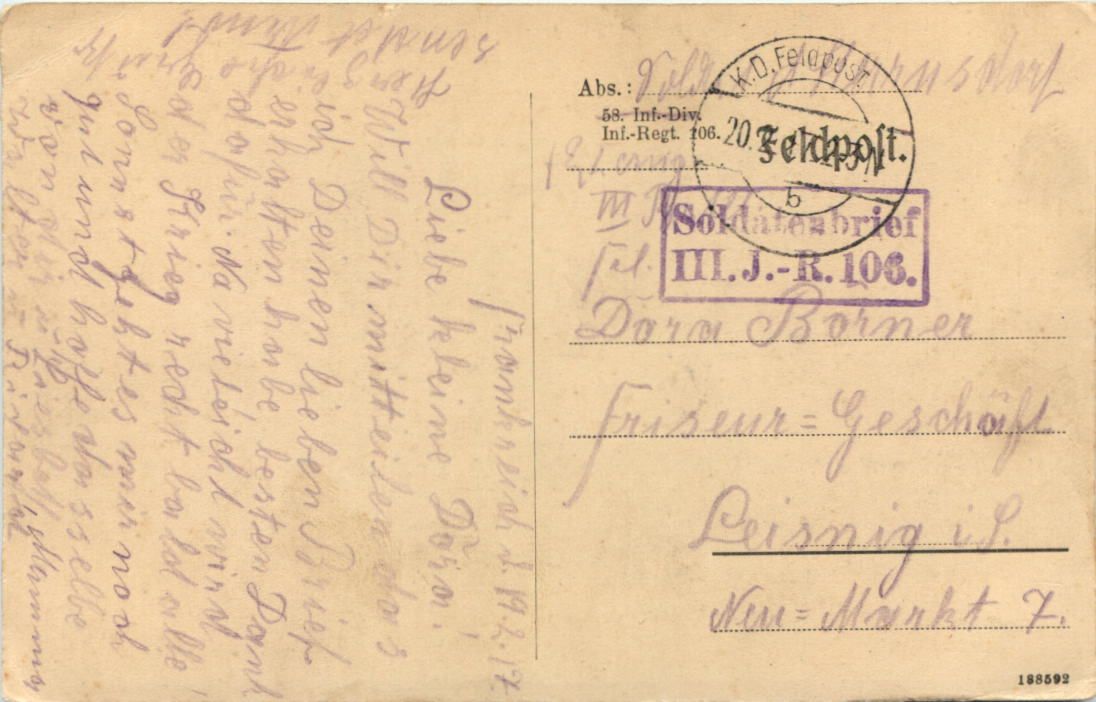 Abs.: Soldat
58. Inf.-Div.
Inf.-Regt. 106.
K.D. Feldpost
20.2.17
b
Feldpost.
Soldatenbrief
III. J.-R. 106.
III
Frl.
Dora Börner
Friseur=Geschäft
Leisnig i. S.
Neu=Markt 7.
188592
Frankreich d. 19.2.17.
Liebe kleine Dora!
Will Dir mitteilen das s
ich Deinen lieben Brief
erhalten habe besten Dank
dafür. Na vieleicht wird
der Krieg recht bald alle
Sonst geht es mir noch
gut und hoffe dasselbe
von Dir u. Mamma
Herzliche Grüße
sendet